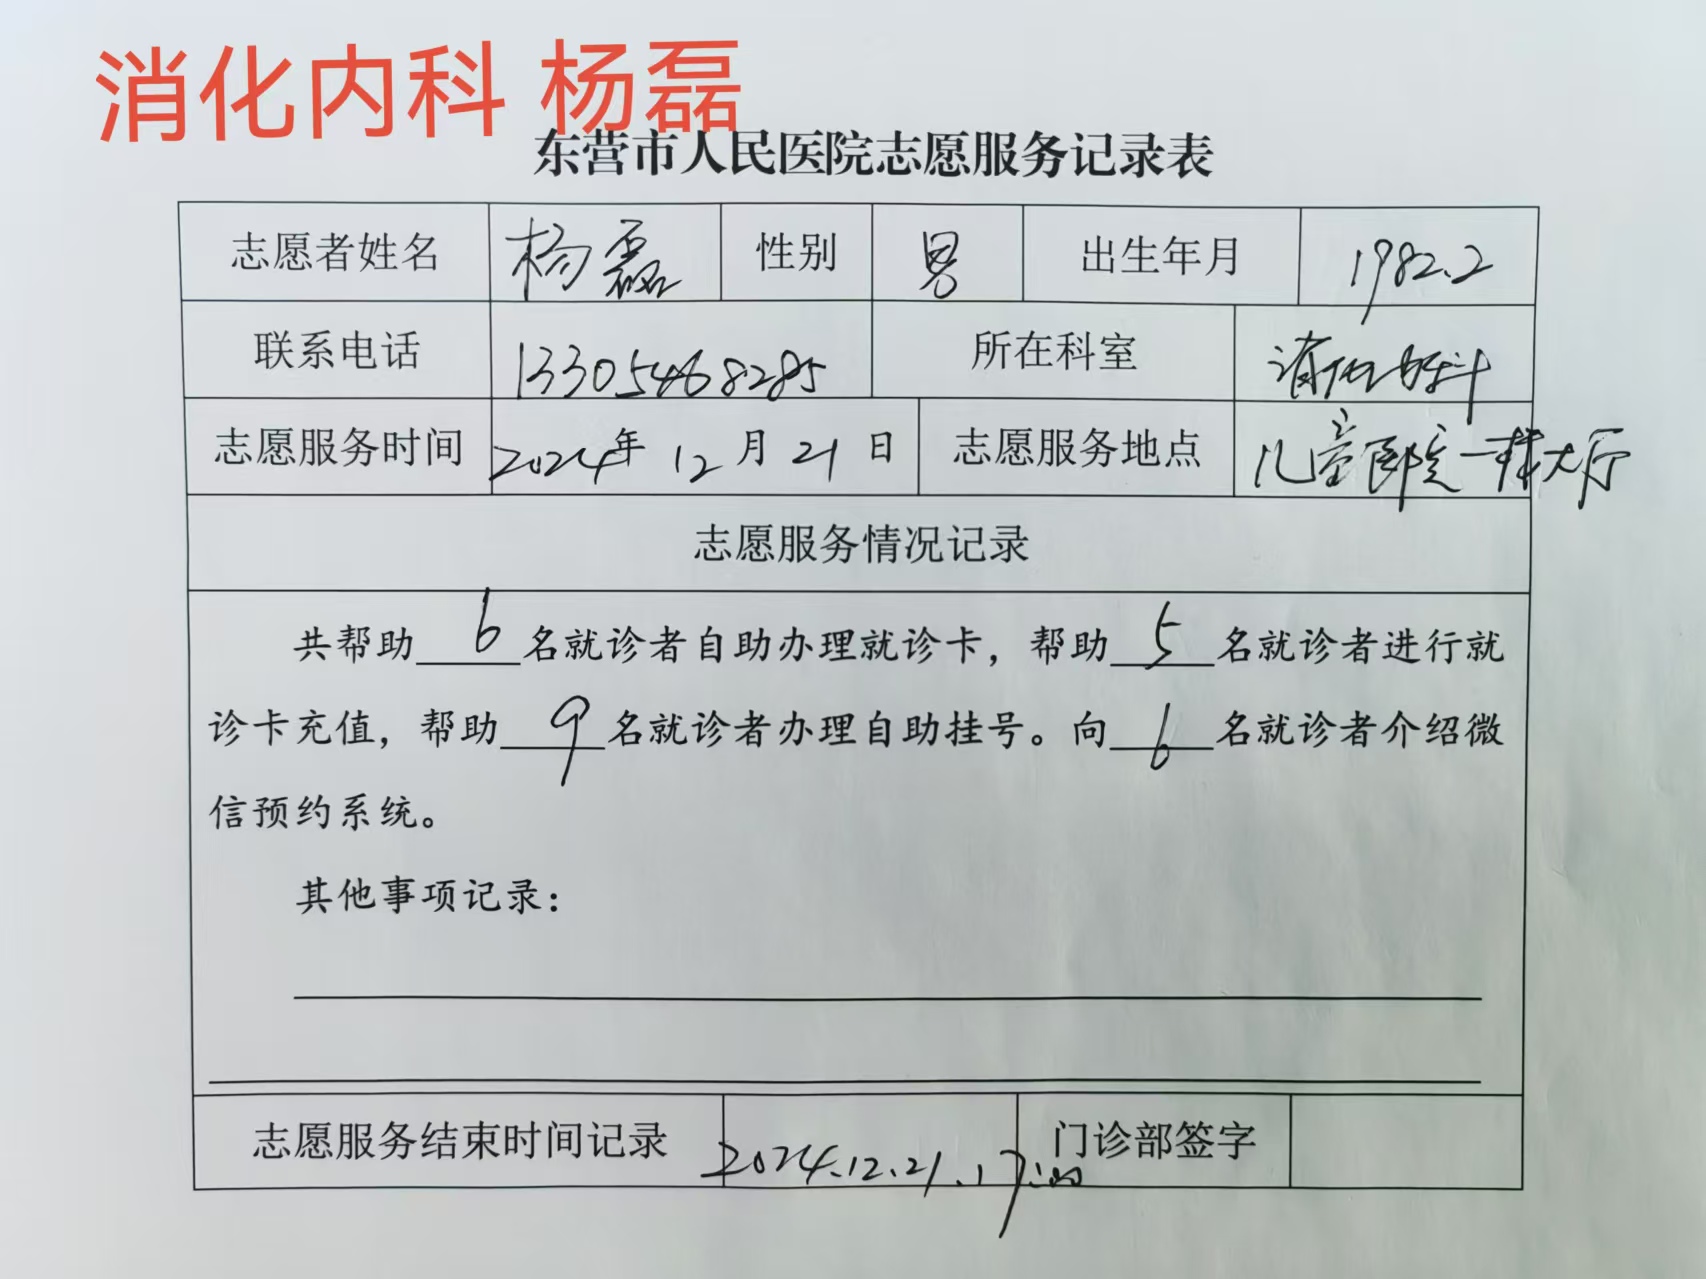 消化内科 杨磊
东营市人民医院志愿服务记录表
志愿者姓名 杨磊 性别 男 出生年月 1982.2
联系电话 13305468285 所在科室 消化内科
志愿服务时间 2024年 12月 21日 志愿服务地点 儿童医院一楼大厅
志愿服务情况记录
共帮助 6 名就诊者自助办理就诊卡，帮助 5 名就诊者进行就
诊卡充值，帮助 9 名就诊者办理自助挂号。向 6 名就诊者介绍微
信预约系统。
其他事项记录：
志愿服务结束时间记录 2024.12.21.17:00 门诊部签字